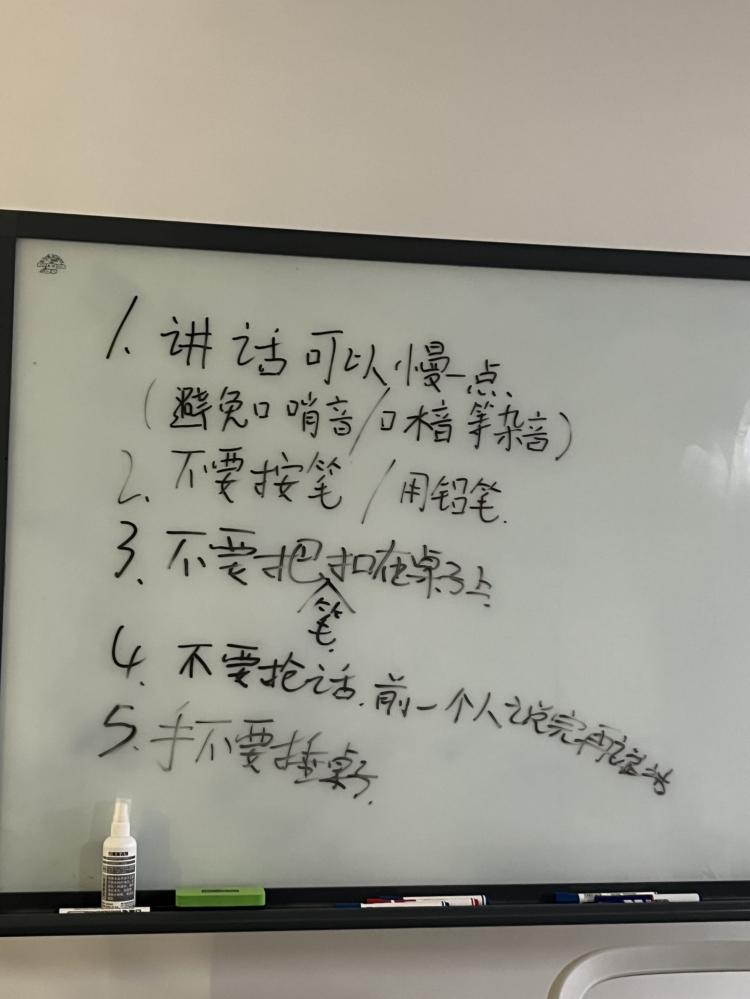 1. 讲话可以慢一点
(避免口哨音/口水音等杂音)
2. 不要按笔/用铅笔.
3. 不要把笔扣在桌子上
4. 不要抢话.前一个人说完再
5. 手不要捶桌子.